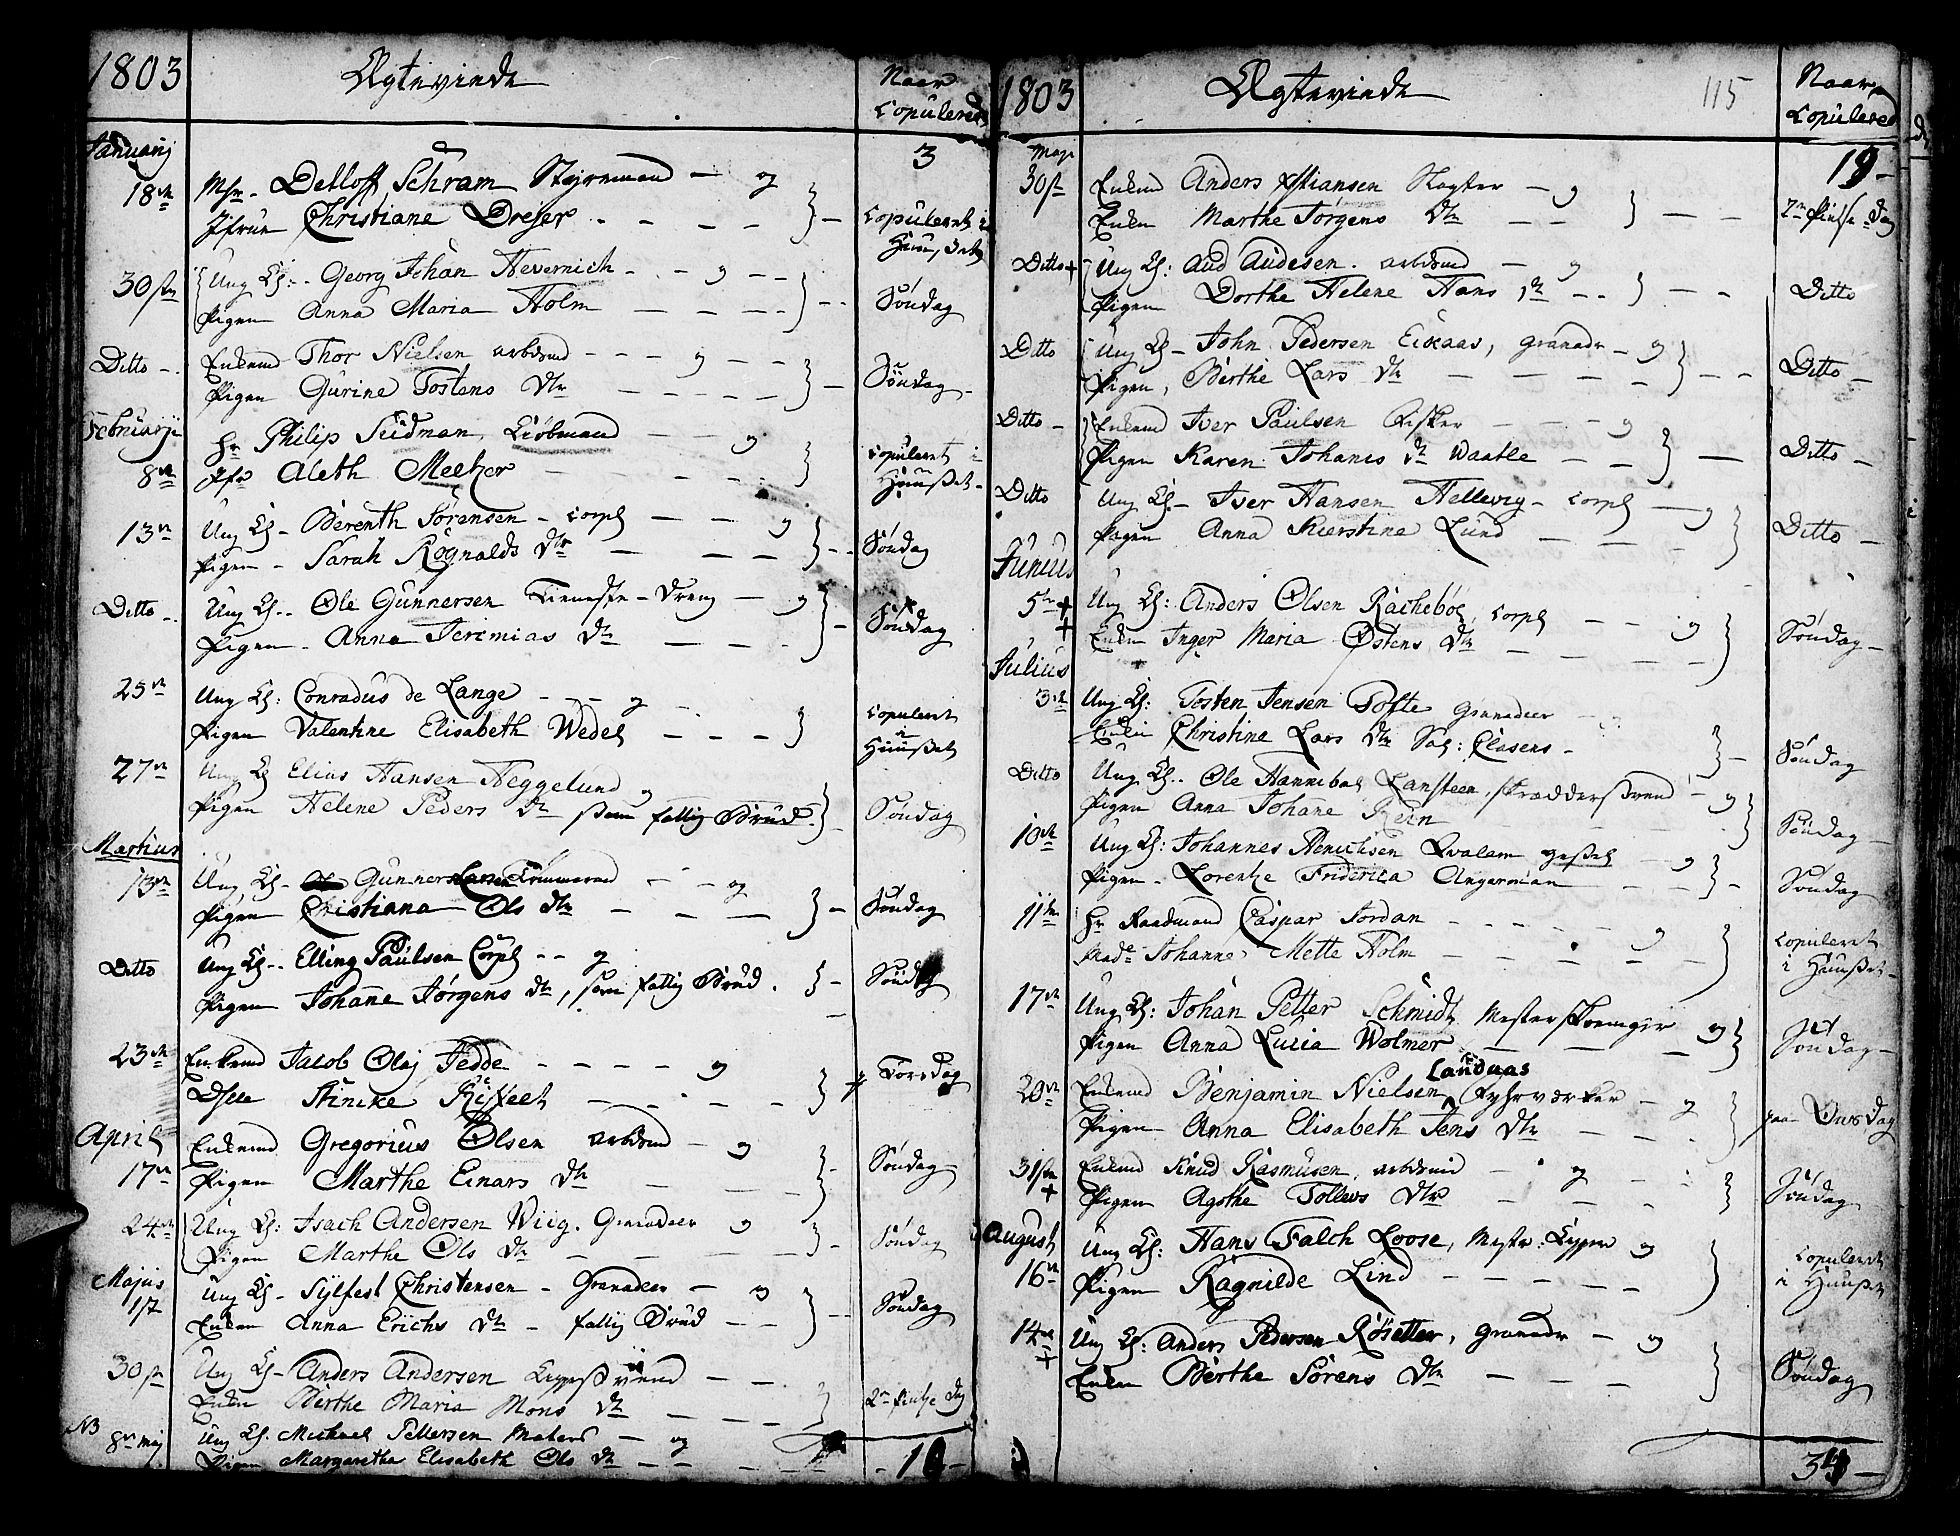 1803 Ægteviede Naar Copulerede
Januarij 3
18de Msr. Detloff Schram Styrmand — og
Jfrue Christiane Drejer — Copuleret i Huuset
30ste Ung K: Georg Johan Hevernich — og
Pigen Anna Maria Holm — Søndag
Ditto Enkemd Thor Nielsen arbdsmd — og
Pigen Gurine Tostens Dtr — Søndag
Februarji
Hr Philip Seidman, Kiøbmand — og
8de Jfr Aleth Meltzer — Copuleret i Huuset
13de Ung K. Berenth Sørensen — Corpl — og
Pigen Sarah Rognalds Dtr — Søndag
Ditto Ung K. Ole Gunnersen Tieneste-Dreng — og
Pigen Anna Jeremias Dtr — Søndag
25de Ung K: Conradus de Lange — og
Pigen Valentine Elisabeth Wedel — Copuleret i Huuset
27de Ung K Elias Hansen Heggelund og
Pigen Helene Peders Dtr som fattig Brud. Søndag
Martius
13de Ung K. Gunner Larsen Tømmermd — og
Pigen Christiana Ols Dtr — Søndag
Ditto Ung K. Elling Paulsen Corpl — og
Pigen Johane Jørgens Dtr, som fattig Brud. Søndag
23de Enkemd Jacob Olaj Fedde — og
Stincke — Torsdag
April Enkemd Gregorius Olsen arbdsmd — og
17de Pigen Marthe Einars Dtr — Søndag
24de Ung K: Isach Andersen Wiig. Granadeer og
Pigen Marthe Ols Dtr — Søndag
Majus Ung K. Sylfest Christensen — Granadeer — og
1ste Enken Anna Erichs Dtr — fattig Brud — Søndag
30ste Ung K. Anders Andersen — —
Enken Berthe Maria Mons Dtr — 2den Pintze Dag
NB Ung K. Michael Pettersen — og
8de Maj Pigen Margaretha Elisabeth Ols Dtr —
1803 Ægteviede 115 Naar Copulered
Maji 19
30ste Enkemd Anders Xstiansen Slagter — og
Enken Marthe Jørgens Dtr — 2den Pintse Dag
Ditto + Ung K: Aud Audesen. arbdsmd — og
Pigen Dorthe Helene Hans Dtr — Ditto
Ditto Ung K. John Pedersen Eikaas, Granadr — og
Pigen, Berthe Lars Dtr — Ditto
Ditto Enkemd Iver Paulsen Fisker — og
Pigen Karen Johanes Dtr Waatle — Ditto
Ditto Ung K. Iver Hansen Hellevig — Corpl — og
Pigen Anna Kierstine Lund — Ditto
Junius
5te + Ung K: Anders Olsen Rachebøe, Corpl — og
+ Enken Inger Maria Østens Dtr — Søndag
Julius
3de Ung K: Tosten Jensen Tofte Granadeer — og
Enken Christine Lars Dtr Sal: Clasens — Søndag
Ditto Ung K. Ole Hannibal Lansteen, Skræddersvend — og
Pigen Anna Johane Rein — Søndag
10de Ung K: Johannes Henrichsen Qvalam — og
Pigen Lorentze Friderica Angerman — Søndag
11te Hr Raadmand Caspar Jordan — og
Made Johanne Mette Holm — Copuleret i Huuset
17de Ung K: Johan Petter Schmidt Mester — og
Pigen Anna Lucia Wolmer — Søndag
20de Enkemd Benjamin Nielsen Landaas Fyhrværker — og
Pigen Anna Elisabeth Jens Dtr — paa Onsdag
31ste Enkemd Knud Rasmusen, arbdsmd — og
+ Pigen Agothe Tollews Dtr — Søndag
August Ung K: Hans Falch Loose, Mestr: — og
16de Pigen Ragnilde Lind — Copuleret i Huuset
14de Ung K: Anders Pedersen Røsetter, Granadr — og
+ Enken Berthe Sørens Dtr — Søndag